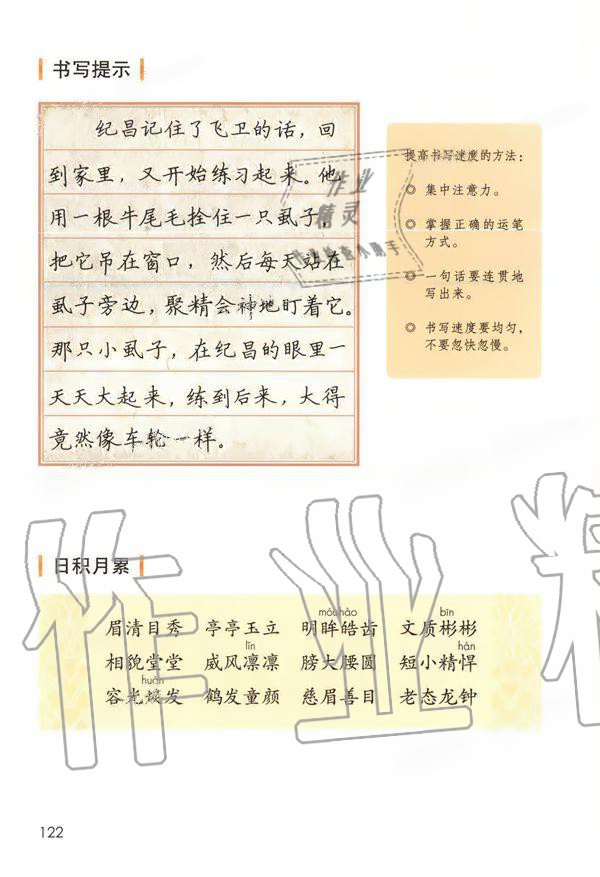 书写提示
纪昌记住了飞卫的话，回
到家里，又开始练习起来。他
用一根牛尾毛拴住一只虱子，
把它吊在窗口，然后每天站在
虱子旁边，聚精会神地盯着它。
那只小虱子，在纪昌的眼里一
天天大起来，练到后来，大得
竟然像车轮一样。
提高书写速度的方法：
◎ 集中注意力。
◎ 掌握正确的运笔
方式。
◎ 一句话要连贯地
写出来。
◎ 书写速度要均匀，
不要忽快忽慢。
作业
精灵
作业精
日积月累
móu hào
bīn
眉清目秀 亭亭玉立 明眸皓齿 文质彬彬
lǐn
hàn
相貌堂堂 威风凛凛 膀大腰圆 短小精悍
huàn
容光焕发 鹤发童颜 慈眉善目 老态龙钟
122